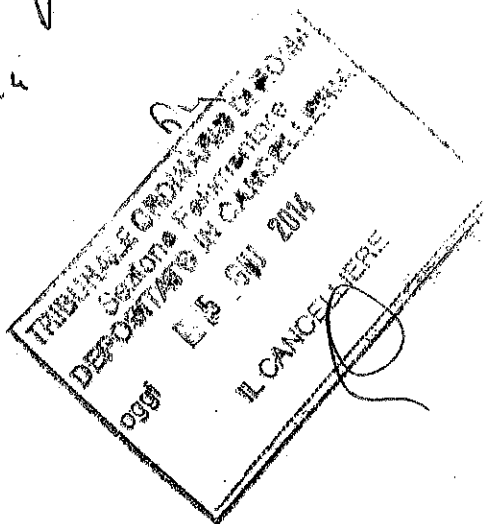 TRIBUNALE ORDINARIO DI ROMA
Sezione Fallimentare
DEPOSITATO IN CANCELLERIA
oggi 5 GIU 2014
IL CANCELLIERE